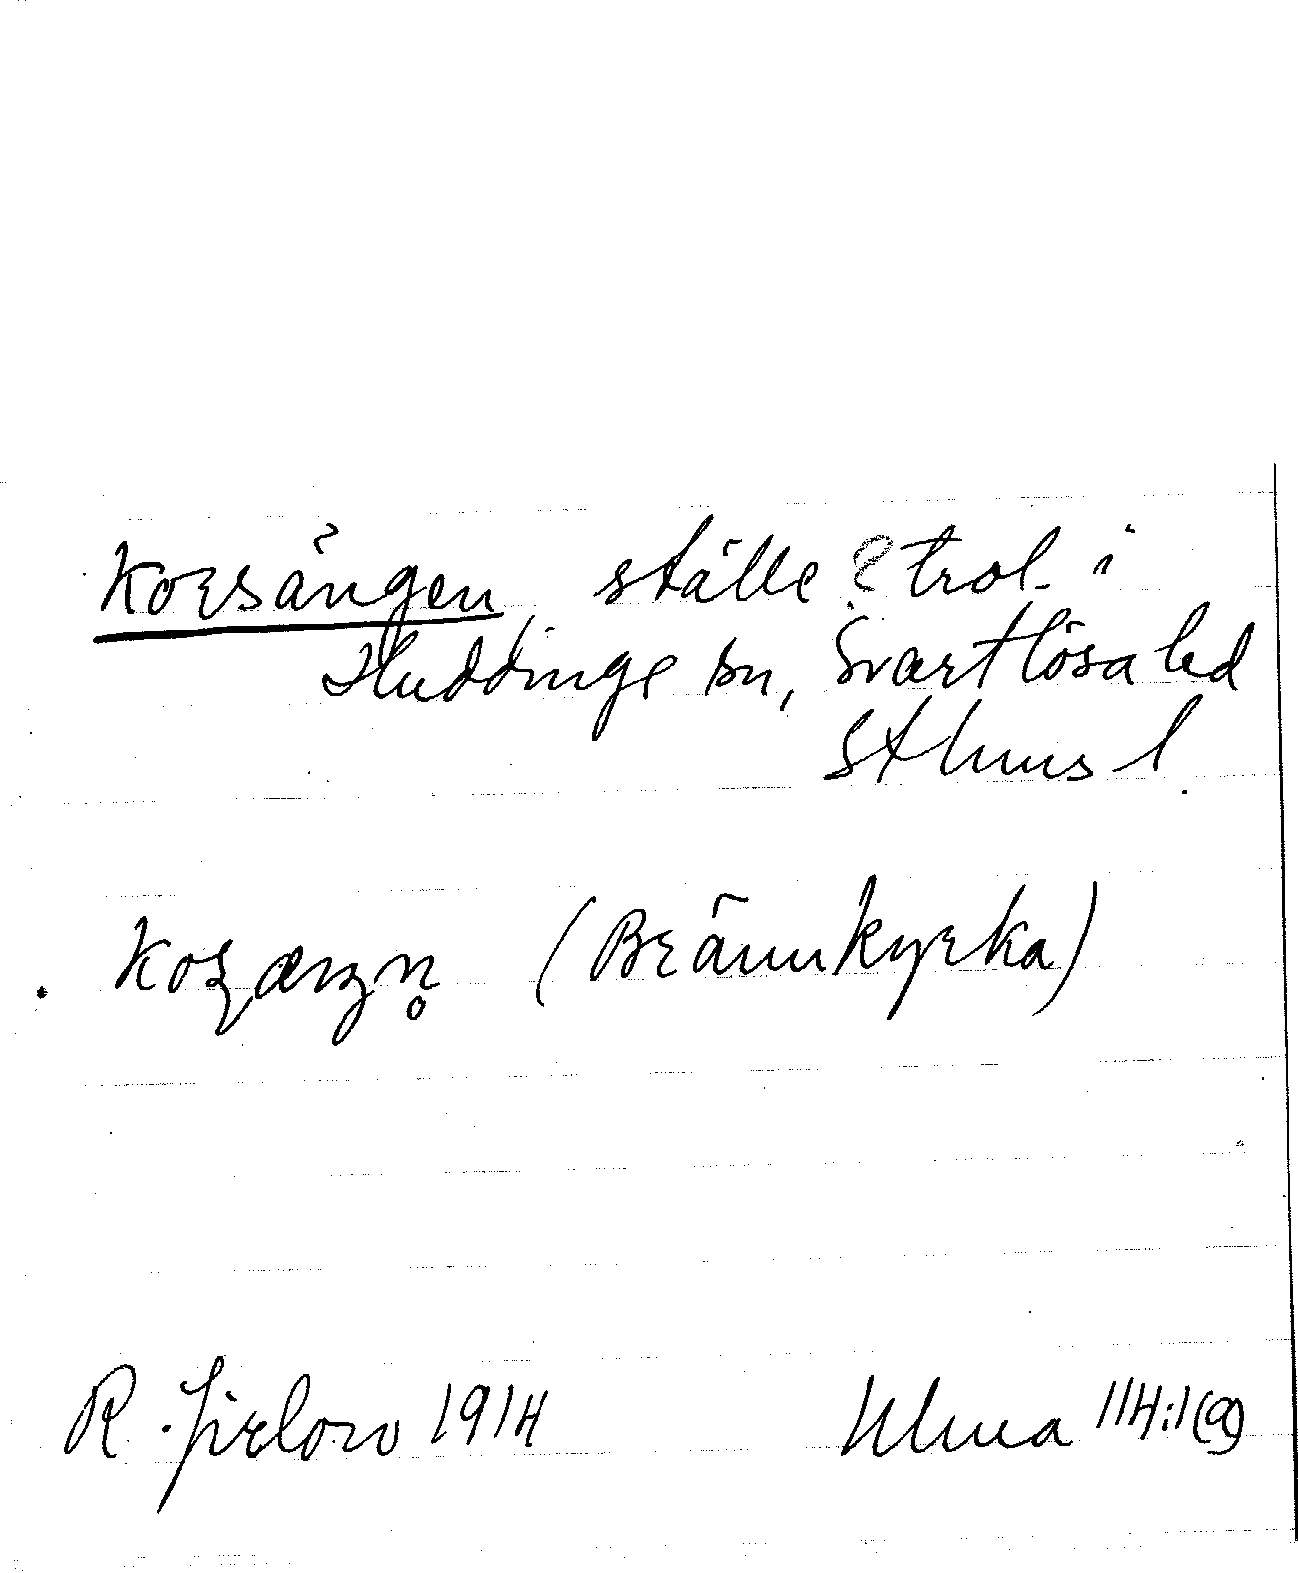 Korsängen ställe? trol. i
Huddinge sn, Svartlösa hd
Sthms l.
(Brännkyrka)
R. Jirlow 1914 Ulma 114:1(9)